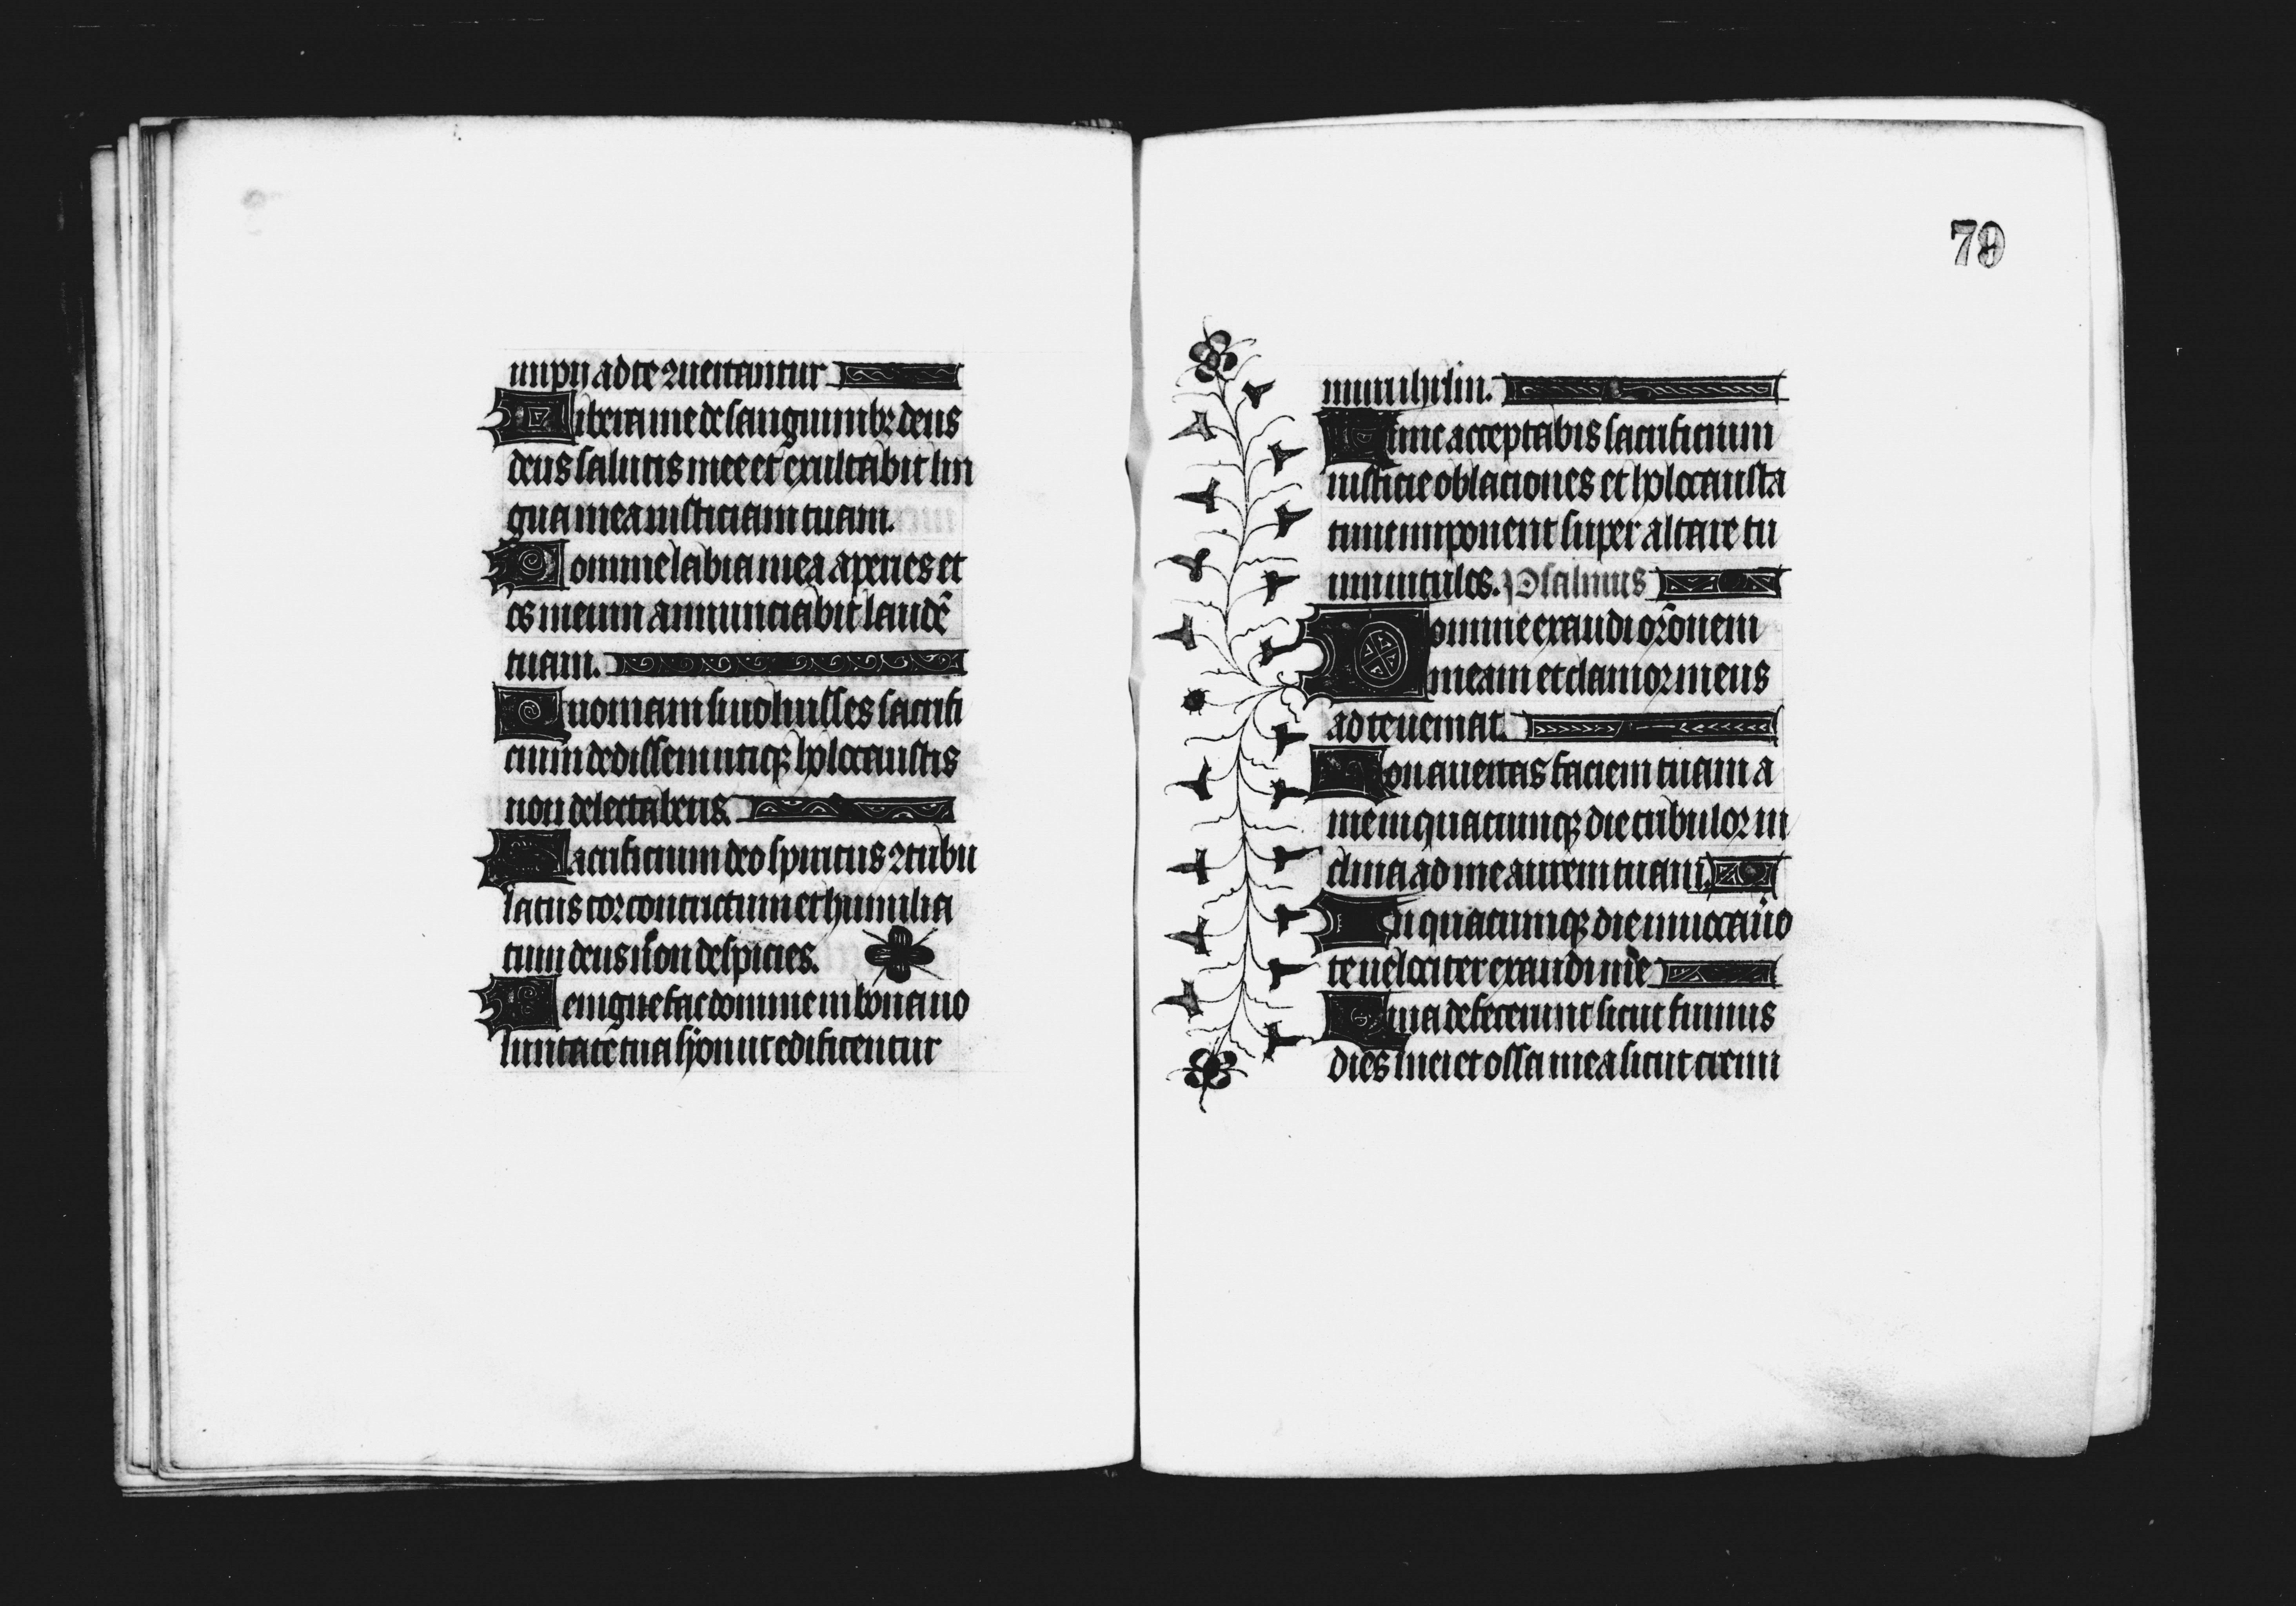 impii ad te ꝯuertantur
Libera me de sanguinibꝫ deus
deus salutis mee et exultabit lin
gua mea iusticiam tuam.
Domine labia mea aperies et
os meum annunciabit laudē
tuam.
Quoniam si uoluisses sacrifi
cium dedissem utiqꝫ holocaustis
non delectaberis.
Sacrificium deo spiritus ꝯtribu
latus cor contritum et humilia
tum deus non despicies.
Benigne fac domine in bona uo
luntate tua syon ut edificentur
79
muri iherlm.
Tunc acceptabis sacrificium
iusticie oblaciones et holocausta
tunc imponent super altare tu
um uitulos. Psalmus
Domine exaudi orōnem
meam et clamor meus
ad te ueniat.
Non auertas faciem tuam a
me in quacumqꝫ die tribulor in
clina ad me aurem tuam.
In quacumqꝫ die inuocauero
te uelociter exaudi me
Quia defecerunt sicut fumus
dies mei et ossa mea sicut cremi